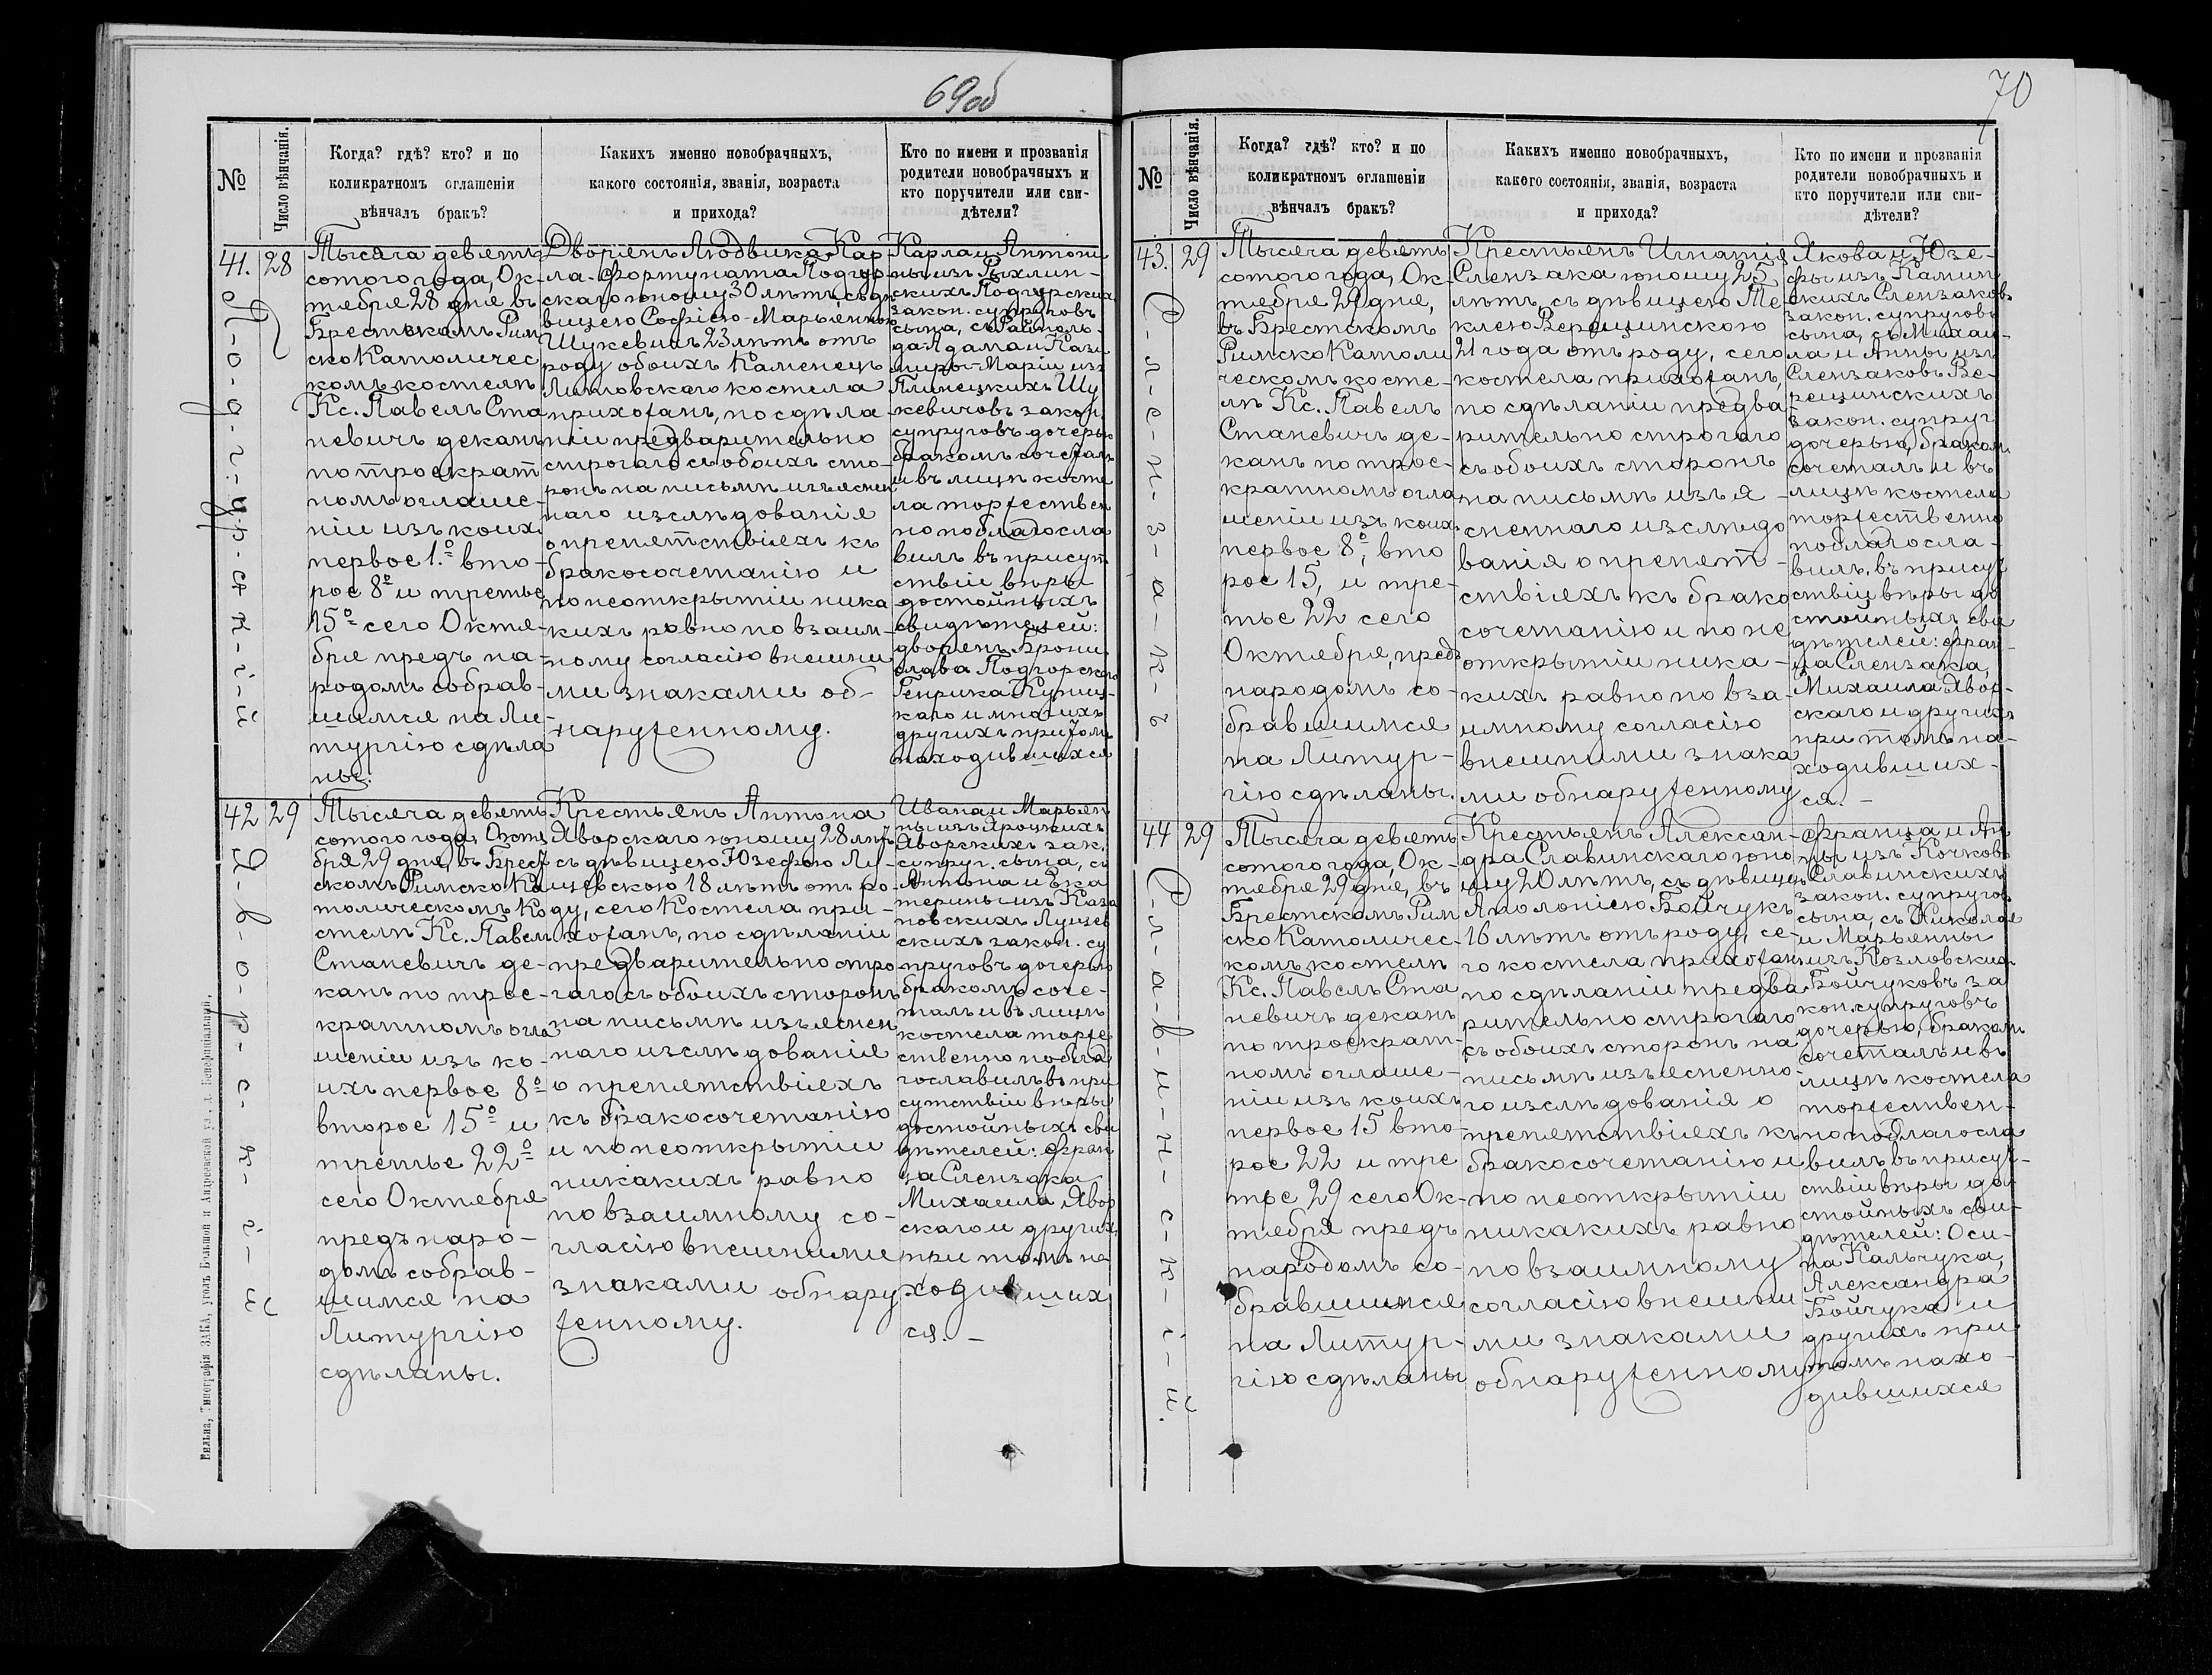 69об
№
Число вѣнчанія.
Когда? гдѣ? кто? и по
коликратномъ оглашеніи
вѣнчалъ бракъ?
Какихъ именно новобрачныхъ,
какого состоянія, званія, возраста
и прихода?
Кто по имени и прозванія
родители новобрачныхъ и
кто поручители или сви-
дѣтели?
41.
28
Тысяча девять
сотого года, Ок-
тября 28 дня въ
Брестскомъ Рим
ско Католичес
комъ костелѣ
Кс. Павелъ Ста
невичъ деканъ
по троекрат
номъ оглаше-
ніи изъ коих
первое 1.º вто-
рое 8º и третье
15º сего Октя-
бря предъ на-
родомъ собрав-
шимся на Ли-
тургію сдѣла
ны.
Дворянъ Людвика Кар
ла-Фортуната Подгор-
скаго юношу 30 лѣтъ, съ дѣ
вицею Софією-Марьянною
Шукевичъ 23 лѣтъ отъ
роду обоихъ Каменецъ
Литовскаго костела
прихожанъ, по сдѣла
ніи предварительно
строгаго съ обоихъ сто-
ронъ на письмѣ изъяснен
наго изслѣдованія
о препятствіяхъ къ
бракосочетанію и
по неоткрытіи ника
кихъ равно по взаим-
ному согласію внешни
ми знаками об-
наруженному.
Карла и Антони
ны изъ Рыхлин-
скихъ Подгурских
закон. супруговъ
сына, съ Райноль-
да Адама и Кази
миры-Маріи изъ
Глинецкихъ Шу
кевичовъ закон.
супруговъ дочерью
бракомъ сочеталъ
и въ лицѣ косте
ла торжествен
но поблагосла
вилъ въ присут
ствіи вѣры
достойныхъ
свидѣтелей:
дворянъ Брони
слава Подгорскаго
Генрика Куниц-
каго и многихъ
другихъ при томъ
находившихся
42
29
Я-в-о-р-с-к-і-й
Тысяча девять
сотого года, Октя
бря 29 дня, въ Брест
скомъ Римско Ка
толическомъ Ко
стелѣ Кс. Павелъ
Станевичъ де-
канъ по трое-
кратномъ огла
шеніи изъ ко-
ихъ первое 8º
второе 15º и
третье 22º
сего Октября
предъ наро-
домъ собрав-
шимся на
Литургію
сдѣланы.
Крестьянъ Антона
Яворскаго юношу 28 лѣтъ
съ дѣвицею Юзефою Лу-
щевскою 18 лѣтъ отъ ро-
ду, сего Костела при-
хожанъ, по сдѣланіи
предварительно стро
гаго съ обоихъ сторонъ
на письмѣ изъяснен
наго изслѣдованія
о препятствіяхъ
къ бракосочетанію
и по неоткрытіи
никакихъ равно
по взаимному со-
гласію внешними
знаками обнару
женному.
Ивана и Марьян
ны изъ Яроцкихъ
Яворскихъ зак.
супруг. сына, съ
Антона и Ека
терины изъ Каза
новскихъ Лущев
скихъ закон. су
пруговъ дочерью
бракомъ соче-
талъ и въ лицѣ
костела торже
ственно побла
гославилъ въ при
сутствіи вѣры
достойныхъ сви
дѣтелей: Фран
ца Слензака
Михаила Явор
скаго и других
при томъ на
ходивших
ся. -
Вильна, Типографія ЗАКА, уголъ Большой и Андреевской ул., д. Бенефиціальный.
70
№
Число вѣнчанія.
Когда? гдѣ? кто? и по
коликратномъ оглашеніи
вѣнчалъ бракъ?
Какихъ именно новобрачныхъ,
какого состоянія, званія, возраста
и прихода?
Кто по имени и прозванія
родители новобрачныхъ и
кто поручители или сви-
дѣтели?
43.
29
С-л-е-н-з-а-к-ъ
Тысяча девять
сотого года, Ок-
тября 29 дня,
въ Брестскомъ
Римско Католи
ческомъ косте-
лѣ Кс. Павелъ
Станевичъ де-
канъ по трое-
кратномъ огла
шеніи изъ коих
первое 8º, вто
рое 15, и тре-
тье 22 сего
Октября, предъ
народомъ со-
бравшимся
на Литур-
гію сдѣланы.
Крестьянъ Игнатія
Слензака юношу 25
лѣтъ, съ дѣвицею Те
клею Верещинскою
21 года отъ роду, сего
костела прихожанъ,
по сдѣланіи предва
рительно строгаго
съ обоихъ сторонъ
на письмѣ изъя-
сненнаго изслѣдо
ванія о препят-
ствіяхъ къ брако
сочетанію и по не
открытіи ника-
кихъ равно по вза-
имному согласію
внешними знака
ми обнаруженному
Якова и Юзе-
фы изъ Камин
скихъ Слензаковъ
закон. супруговъ
сына, съ Михаи-
ла и Анны изъ
Слензаковъ Ве-
рещинскихъ
закон. супруг
дочерью, бракомъ
сочеталъ и въ
лицѣ костела
торжественно
поблагосла-
вилъ, въ присут
ствіи вѣры до
стойныхъ сви
дѣтелей: Фран-
ца Слензака,
Михаила Явор-
скаго и другихъ
при томъ на-
ходивших-
ся. -
44
29
С-л-а-в-и-н-с-к-і-й.
Тысяча девять
сотого года, Ок-
тября 29 дня, въ
Брестскомъ Рим
ско Католичес-
комъ костелѣ
Кс. Павелъ Ста
невичъ деканъ
по троекрат-
номъ оглаше-
ніи изъ коихъ
первое 15 вто-
рое 22 и тре
тье 29 сего Ок-
тября предъ
народомъ со-
бравшимся
на Литур-
гію сдѣланы
Крестьянъ Алексан-
дра Славинскаго юно
шу 20 лѣтъ, съ дѣвицею
Аполонією Бойчукъ
16 лѣтъ отъ роду, се-
го костела прихожан
по сдѣланіи предва
рительно строгаго
съ обоихъ сторонъ на
письмѣ изъясненно-
го изслѣдованія о
препятствіяхъ къ
бракосочетанію и
по неоткрытіи
никакихъ равно
по взаимному
согласію внешни
ми знаками
обнаруженному
Франца и Ан
ны изъ Кочковъ
Славинскихъ
закон. супругов
сына, съ Николая
и Марьянны
изъ Козловских
Бойчуковъ за
кон. супруговъ
дочерью, бракомъ
сочеталъ и въ
лицѣ костела
торжествен-
но поблагосла
вилъ въ присут-
ствіи вѣры до-
стойныхъ сви-
дѣтелей: Оси-
па Кальчука,
Александра
Бойчука и
другихъ при
томъ нахо-
дившихся